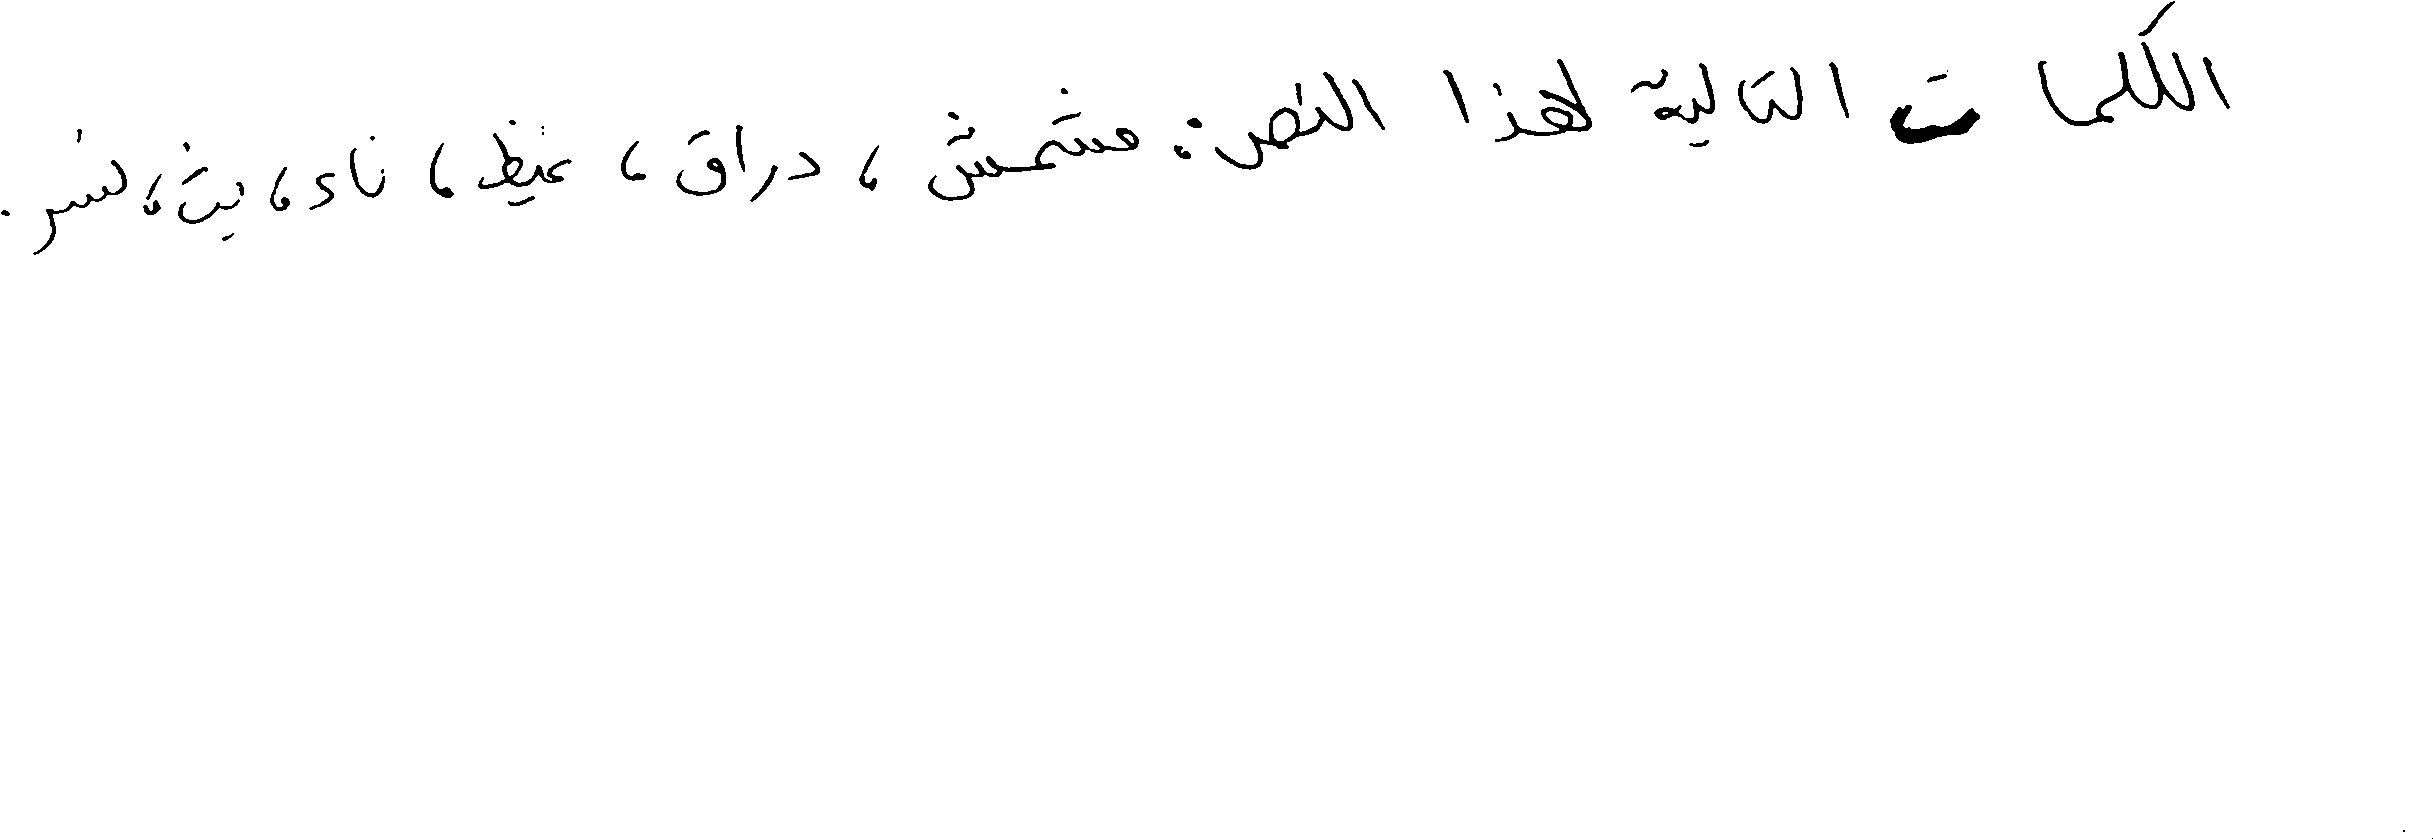 الكلمات التالية لهذا النص: مشمش، دراق، غيظ، ناء، يث، نسر.